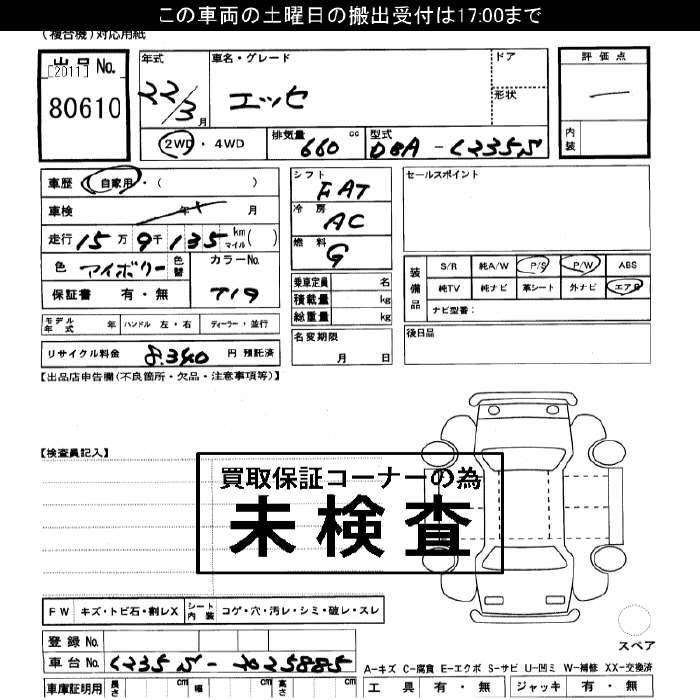 この車両の土曜日の搬出受付は17:00まで
(複合機)対応用紙
出品No.
[2011]
80610
年式
22/3月
車名・グレード
エッセ
ドア
形状
2WD・4WD
排気量 660 cc
型式 DBA-L235S
評価点
内装
車歴 自家用・( )
車検 年 月
走行 15万9千135 km マイル( )
色 アイボリー 色替
カラーNo.
719
保証書 有・無
シフト
FAT
冷房
AC
燃料
G
乗車定員 名
積載量 kg
総重量 kg
セールスポイント
装備品
S/R 純A/W P/S P/W ABS
純TV 純ナビ 革シート 外ナビ エアB
ナビ型番:
モデル年式 年 ハンドル 左・右 ディーラー・並行
名変期限
月 日
後日品
リサイクル料金 8,340 円 預託済
【出品店申告欄(不良箇所・欠品・注意事項等)】
【検査員記入】
買取保証コーナーの為
未検査
FW キズ・トビ石・割レX シート内装 コゲ・穴・汚レ・シミ・破レ・スレ
登録No.
スペア
車台No. L235S-2025885
A-キズ C-腐食 E-エクボ S-サビ U-凹ミ W-補修 XX-交換済
車庫証明用 長さ cm 幅 cm 高さ cm
工具 有・無 ジャッキ 有・無